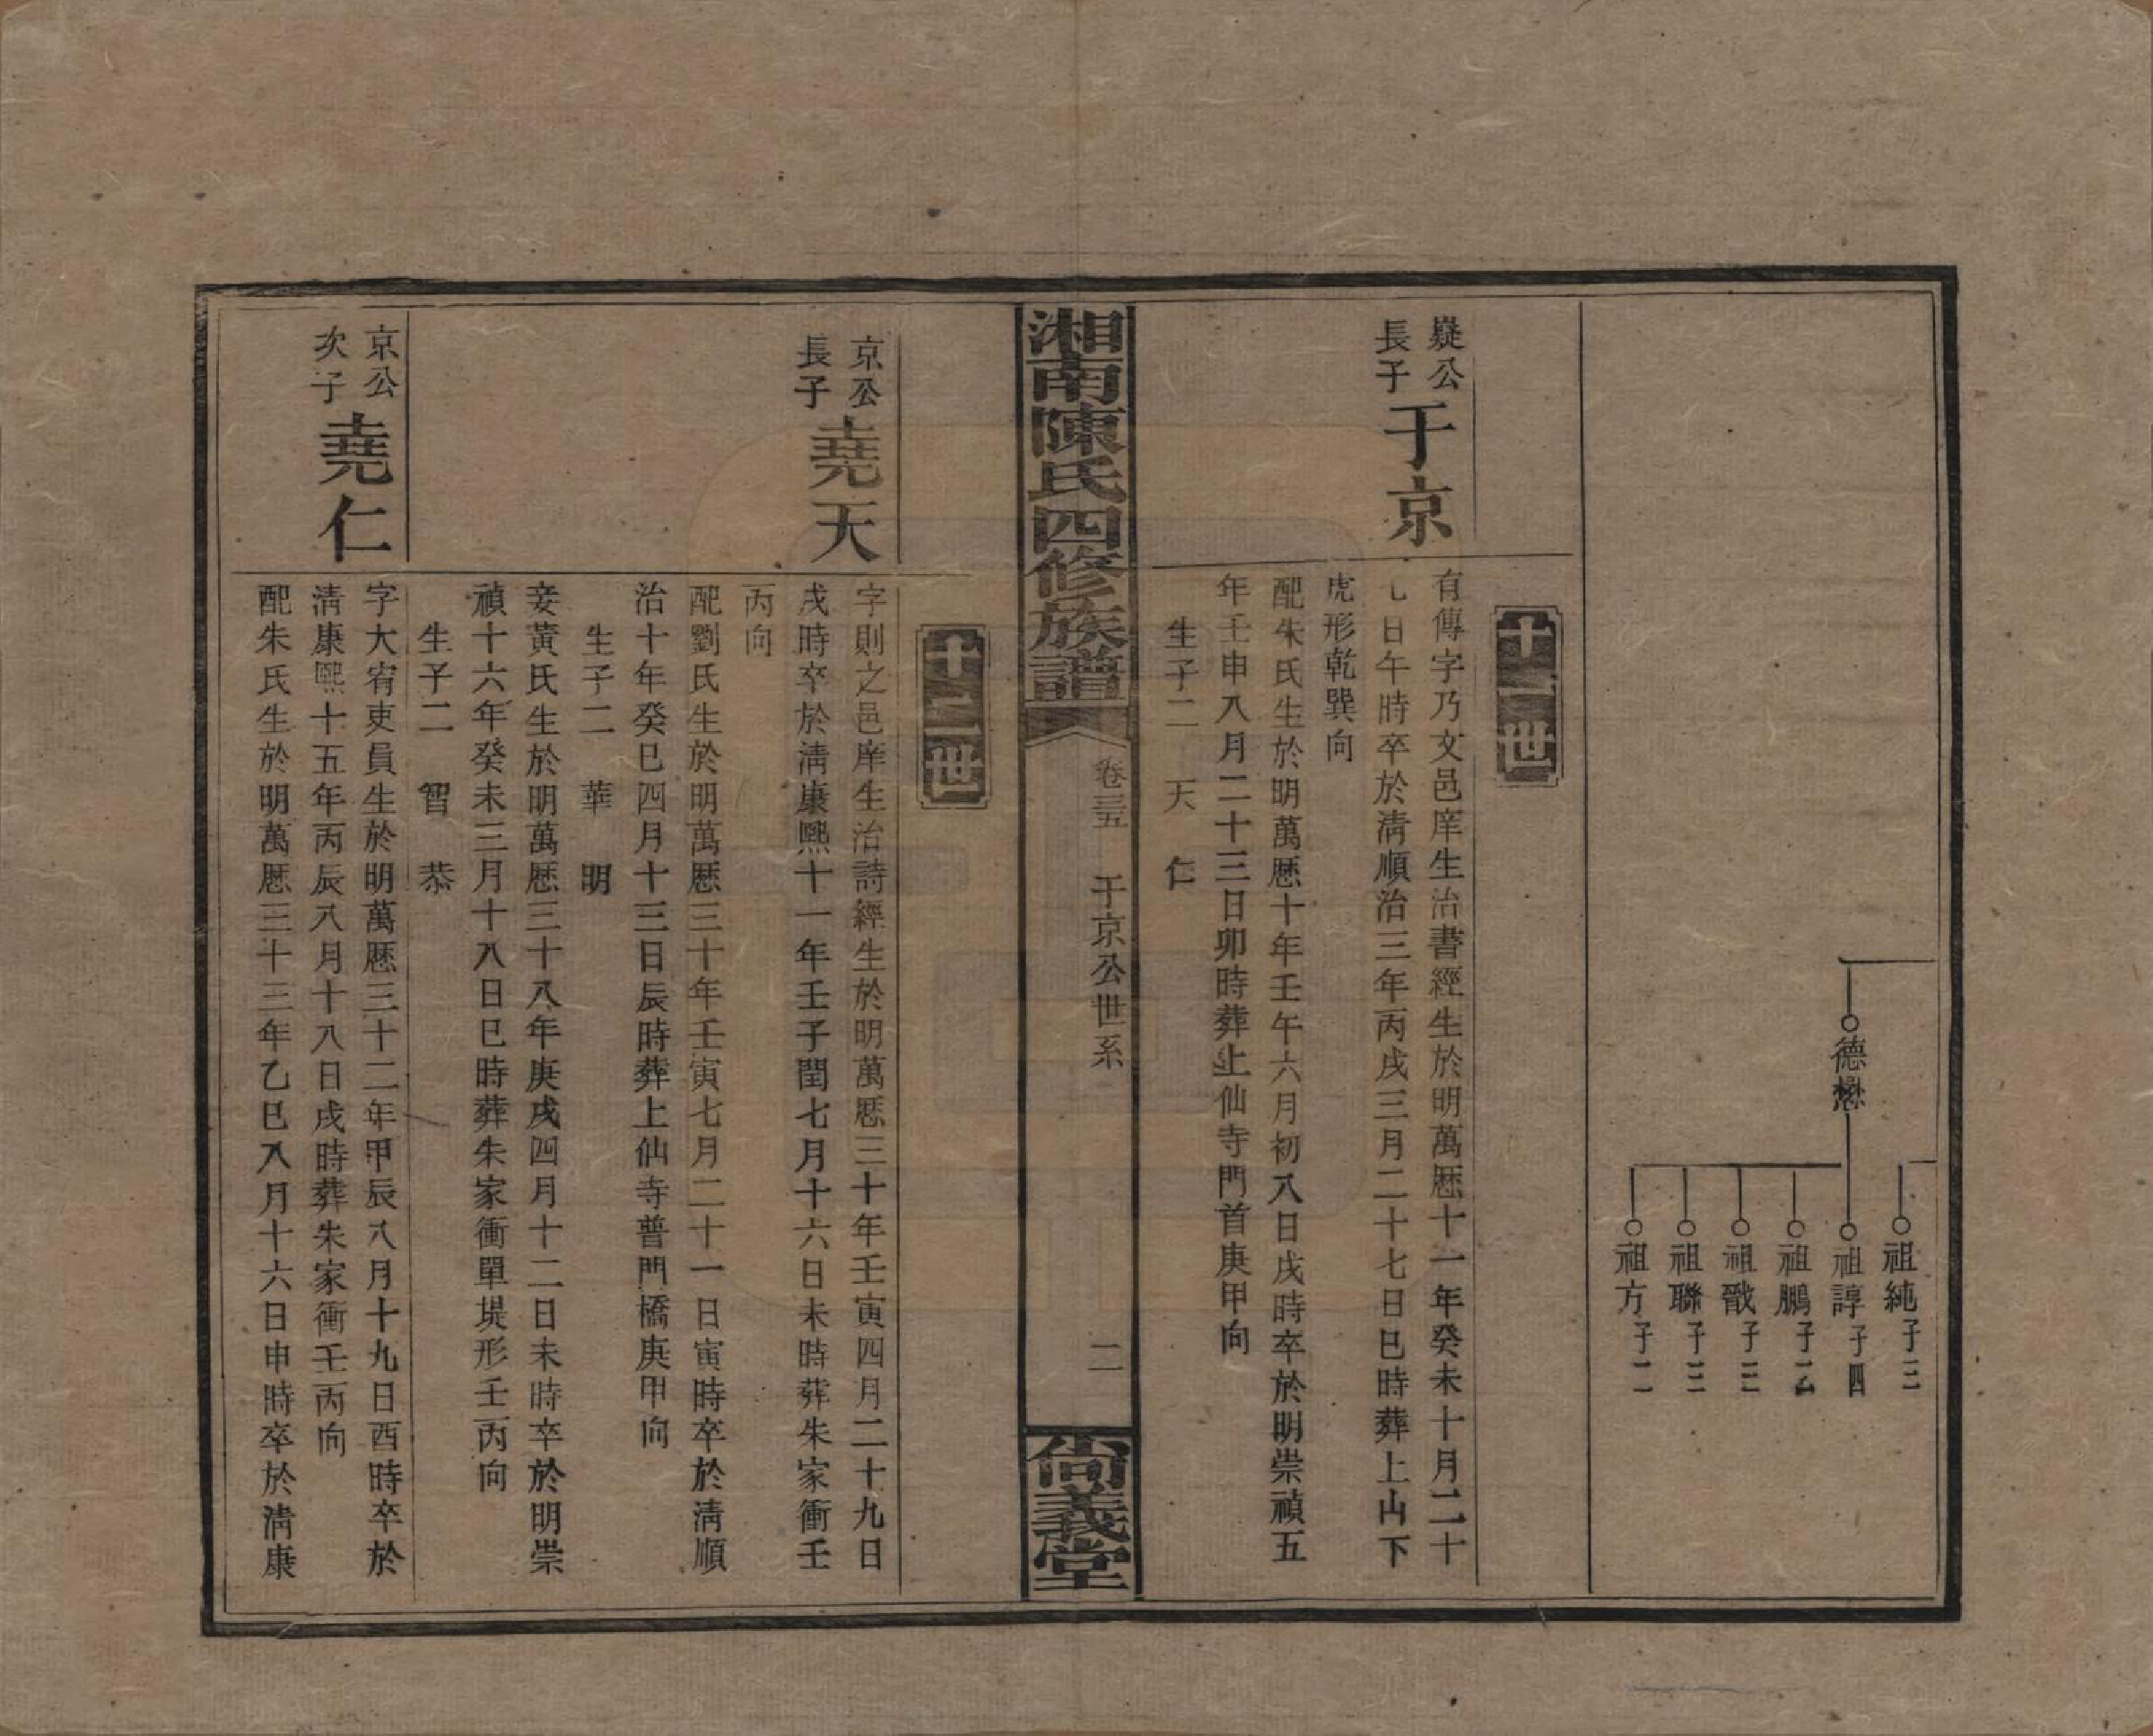 德懋
祖純子三
祖諄子四
祖鵬子乙
祖戩子三
祖聯子三
祖方子二
十一世
嶷公長子于京
有傳字乃文邑庠生治書經生於明萬厯十一年癸未十月二十
七日午時卒於清順治三年丙戌三月二十七日巳時葬上山下
虎形乾巽向
配朱氏生於明萬厯十年壬午六月初八日戌時卒於明崇禎五
年壬申八月二十三日卯時葬上仙寺門首庚甲向
生子二　天　仁
湘南陳氏四修族譜
卷三五　于京公世系　二
尚義堂
十二世
京公長子堯天
字則之邑庠生治詩經生於明萬厯三十年壬寅四月二十九日
戌時卒於清康熙十一年壬子閏七月十六日未時葬朱家衝壬
丙向
配劉氏生於明萬厯三十年壬寅七月二十一日寅時卒於清順
治十年癸巳四月十三日辰時葬上仙寺普門橋庚甲向
生子二　華　明
妾黃氏生於明萬厯三十八年庚戌四月十二日未時卒於明崇
禎十六年癸未三月十八日巳時葬朱家衝單堤形壬丙向
生子二　智　恭
京公次子堯仁
字大宥吏員生於明萬厯三十二年甲辰八月十九日酉時卒於
清康熙十五年丙辰八月十八日戌時葬朱家衝壬丙向
配朱氏生於明萬厯三十三年乙巳八月十六日申時卒於清康